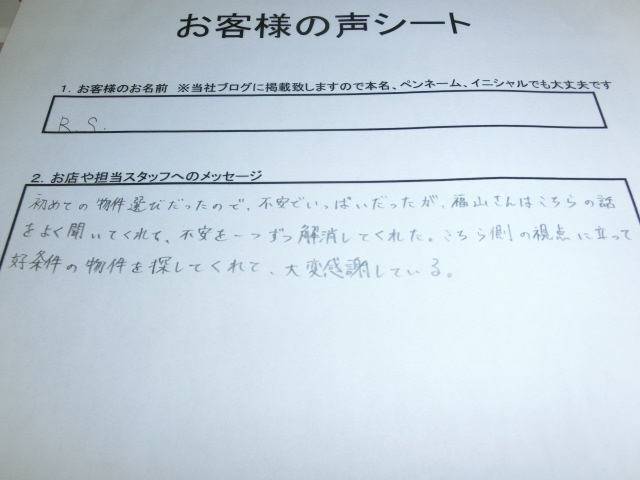 お客様の声シート
1．お客様のお名前 ※当社ブログに掲載致しますので本名、ペンネーム、イニシャルでも大丈夫です
R.S.
2．お店や担当スタッフへのメッセージ
初めての物件選びだったので、不安でいっぱいだったが、福山さんはこちらの話
をよく聞いてくれて、不安を一つずつ解消してくれた。こちら側の視点に立って
好条件の物件を探してくれて、大変感謝している。